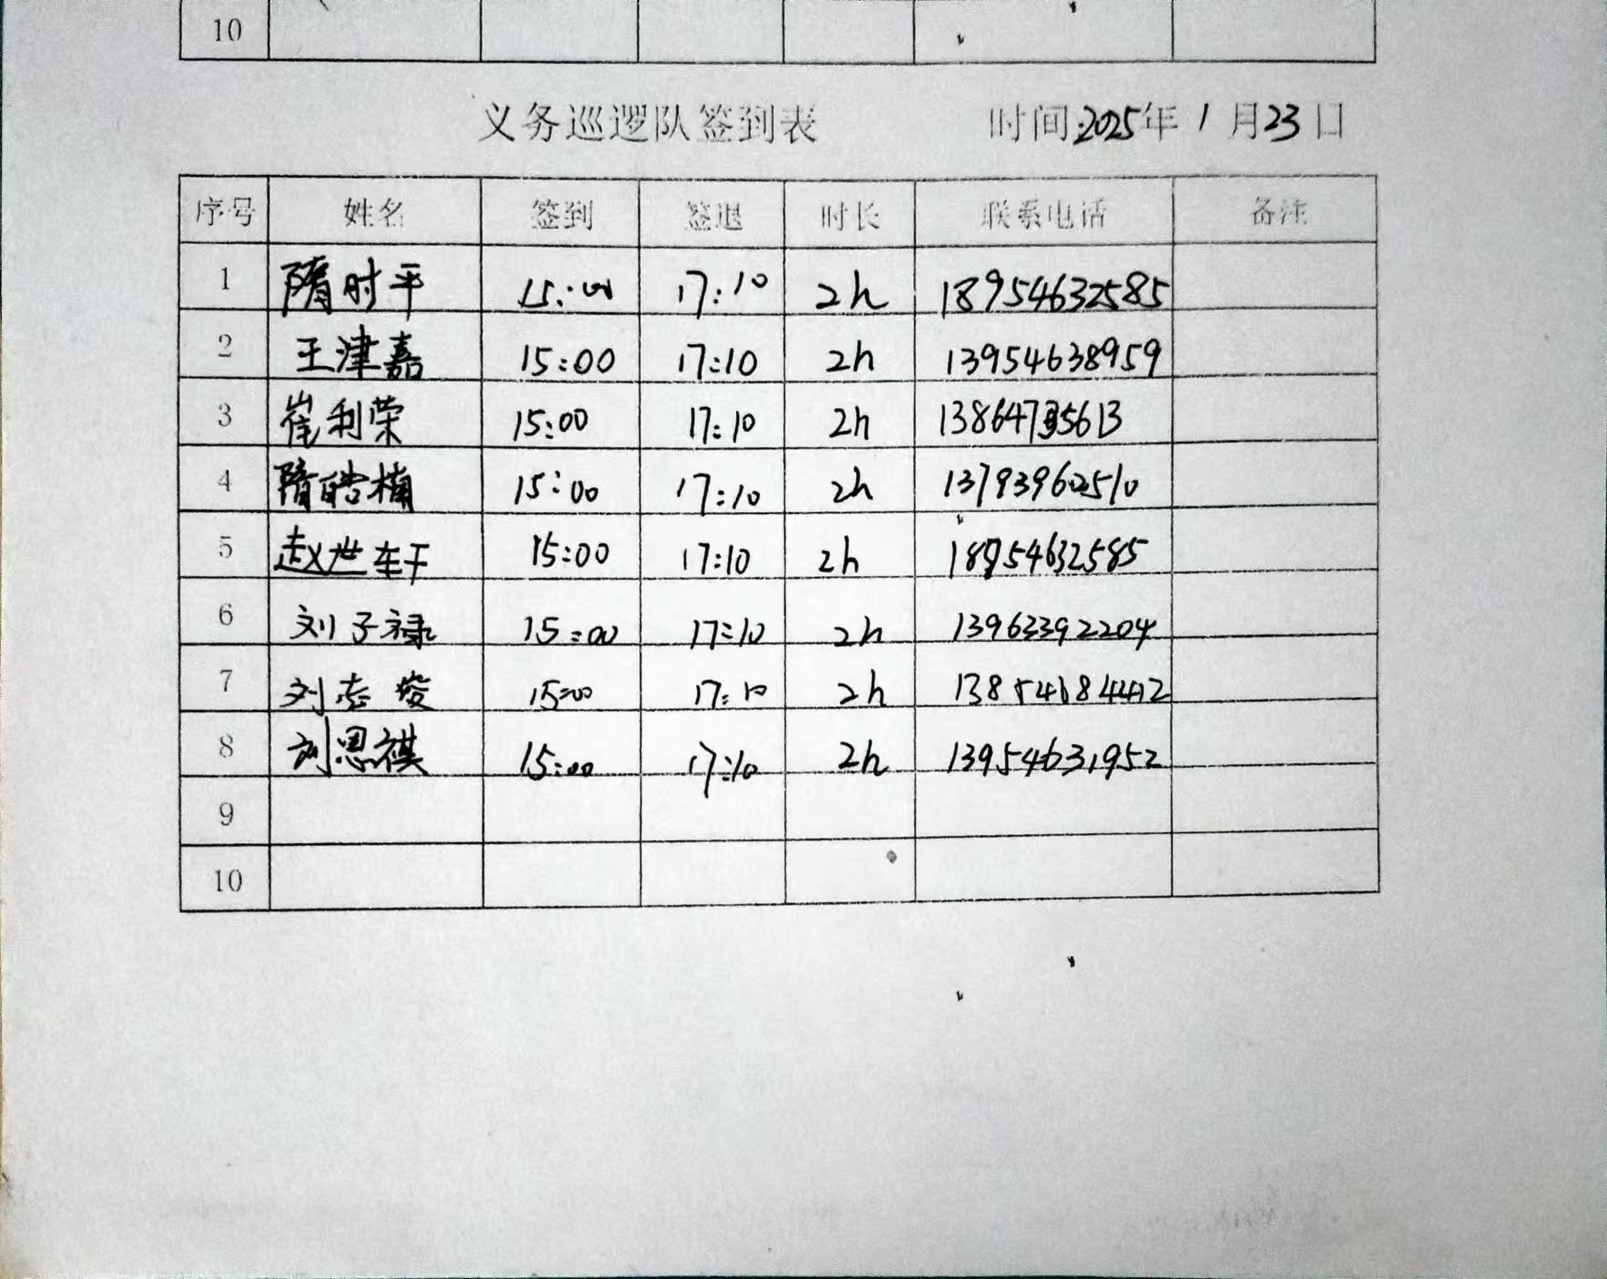 10
义务巡逻队签到表 时间:2025年1月23日
序号 姓名 签到 签退 时长 联系电话 备注
1 隋时平 15:00 17:10 2h 18954632585
2 王津嘉 15:00 17:10 2h 13954638959
3 崔利荣 15:00 17:10 2h
4 隋皓楠 15:00 17:10 2h 13793960510
5 赵世轩 15:00 17:10 2h 18954632585
6 刘子禄 15:00 17:10 2h 13963392204
7 刘志俊 15:00 17:10 2h 13854684412
8 刘思祺 15:00 17:10 2h 13954631952
9
10